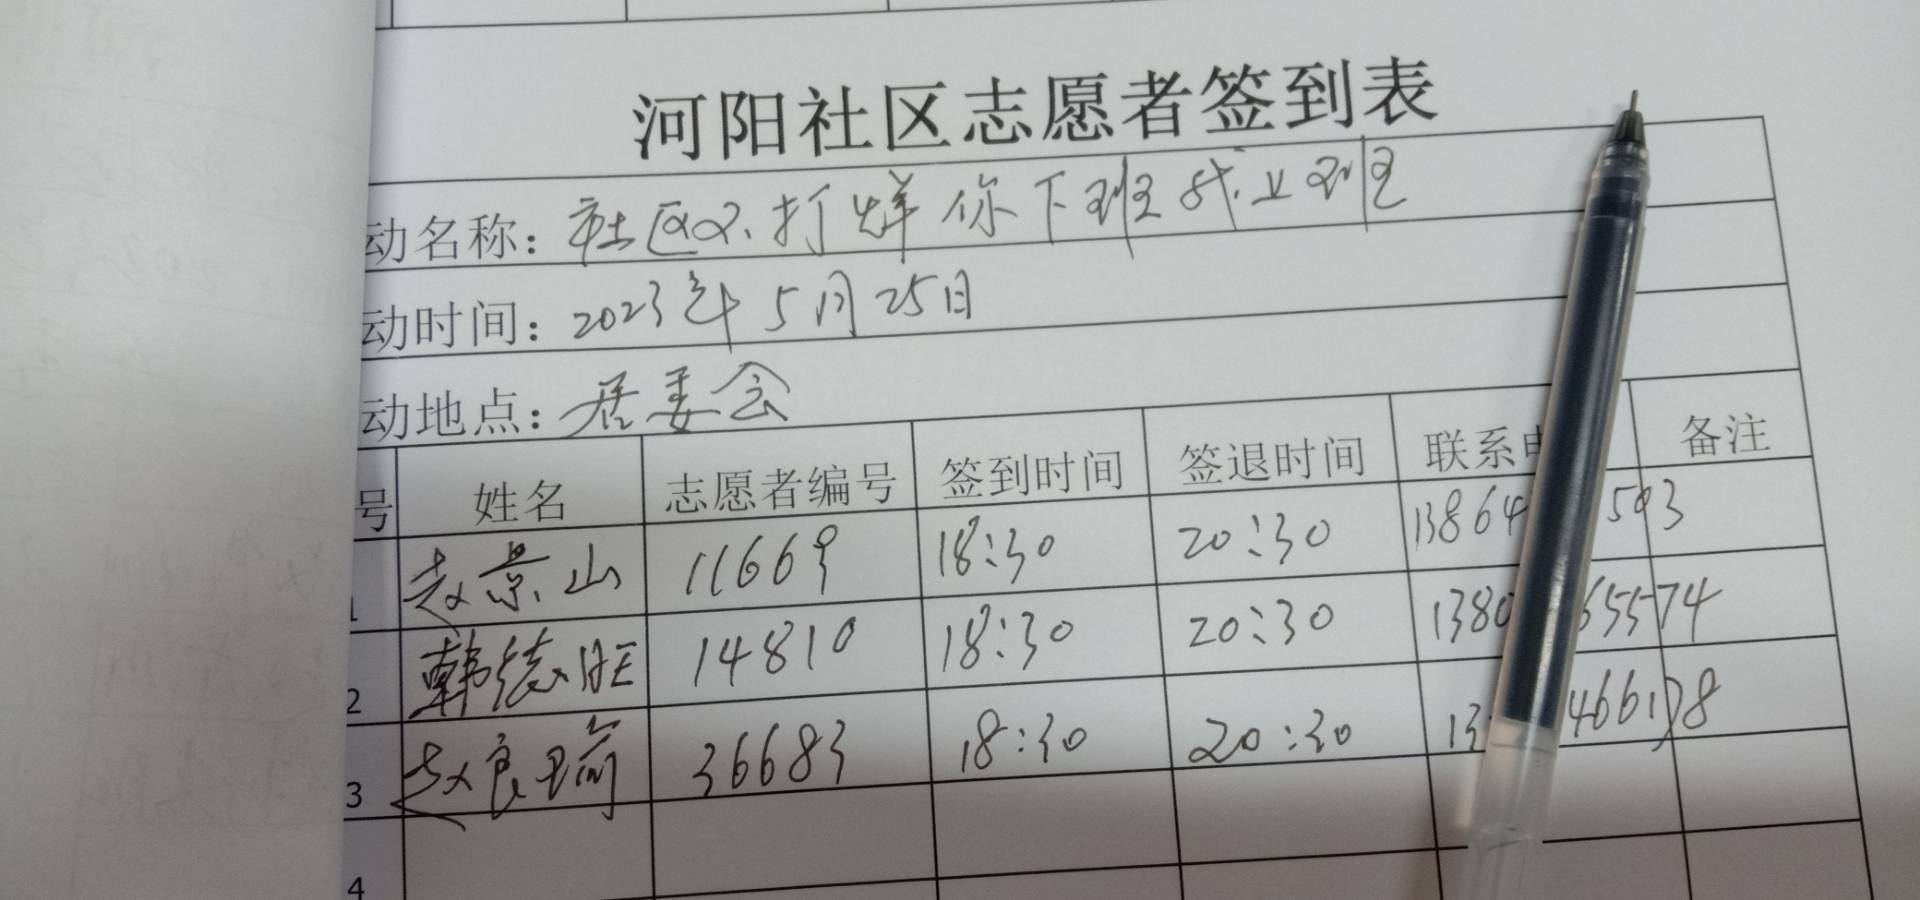 河阳社区志愿者签到表
动名称：社区不打烊你下班我上班
动时间：2023年5月25日
动地点：居委会
号 姓名 志愿者编号 签到时间 签退时间 联系 备注
1 赵景山 11669 18:30 20:30 13864 503
2 韩德旺 14810 18:30 20:30 1380 65574
3 赵良瑜 36683 18:30 20:30 13 466178
4